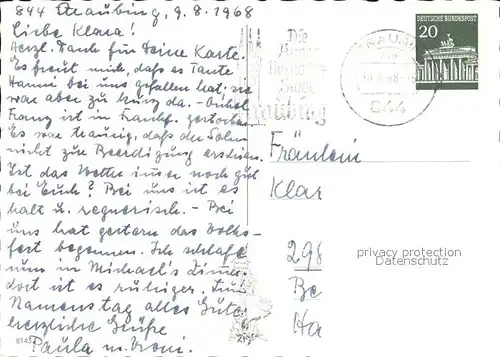 844 Straubing, 9.8.1968
Liebe Klara!
Herzl. Dank für Deine Karte.
Es freut mich, daß es Tante
Hanni bei uns gefallen hat, sie
war aber zu kurz da. - Onkel
Franz ist in Frankf. gestorben
Es war traurig, daß der Sohn
nicht zur Beerdigung erschien.
Ist das Wetter immer noch gut
bei Euch? Bei uns ist es
kalt u. regnerisch. - Bei
uns hat gestern das Volks-
fest begonnen. Ich schlafe
nun in Michael's Zimmer
dort ist es ruhiger. Zum
Namenstag alles Gute
herzliche Grüße
Paula u. Vroni.
814
Die
Straubing
STRAUBING
844
DEUTSCHE BUNDESPOST
20
Fräulein
Klar
298
privacy protection
Datenschutz
Be
Ha